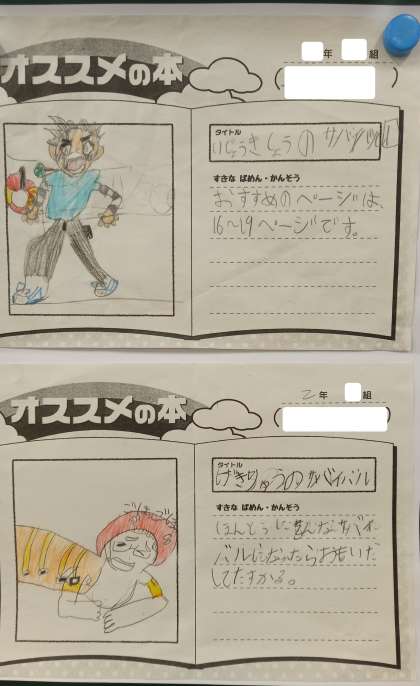 オススメの本
年 組
タイトル
いじょうきしょうのサバイバル1
すきな ばめん・かんそう
おすすめのページは、
16〜19ページです。
オススメの本
2年 組
タイトル
げきりゅうのサバイバル
すきな ばめん・かんそう
ほんとうにそんなサバイ
バルになったらおもいだ
してたすかる。